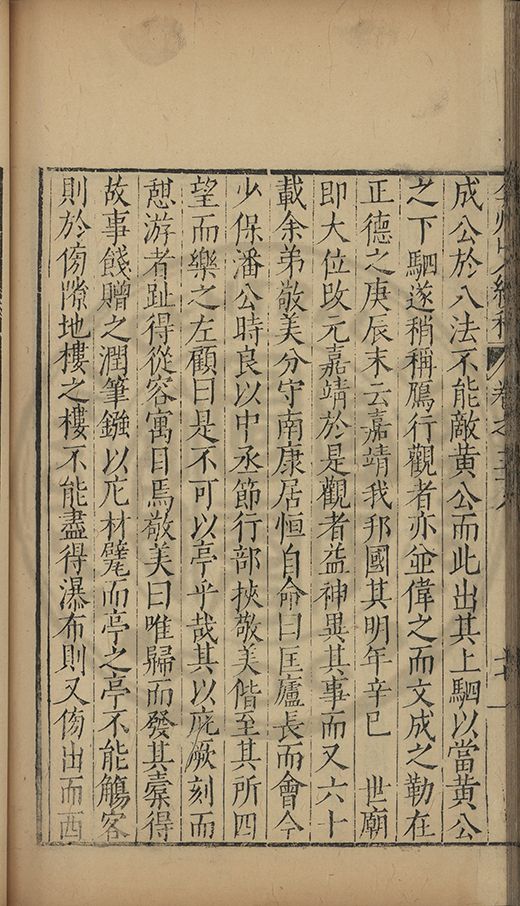 成公於八法不能敵黃公而此出其上駟以當黃公
之下駟遂稍稱鴈行觀者亦並偉之而文成之勒在
正德之庚辰末云嘉靖我邦國其明年辛巳　世廟
即大位改元嘉靖於是觀者益神異其事而又六十
載余弟敬美分守南康居恒自命曰匡廬長而會今
少保潘公時良以中丞節行部挾敬美偕至其所四
望而樂之左顧曰是不可以亭乎哉其以庇厥刻而
憇游者趾得從容寓目焉敬美曰唯歸而發其槖得
故事餞贈之潤筆鏹以庀材甓而亭之亭不能觴客
則於傍隙地樓之樓不能盡得瀑布則又傍出而西